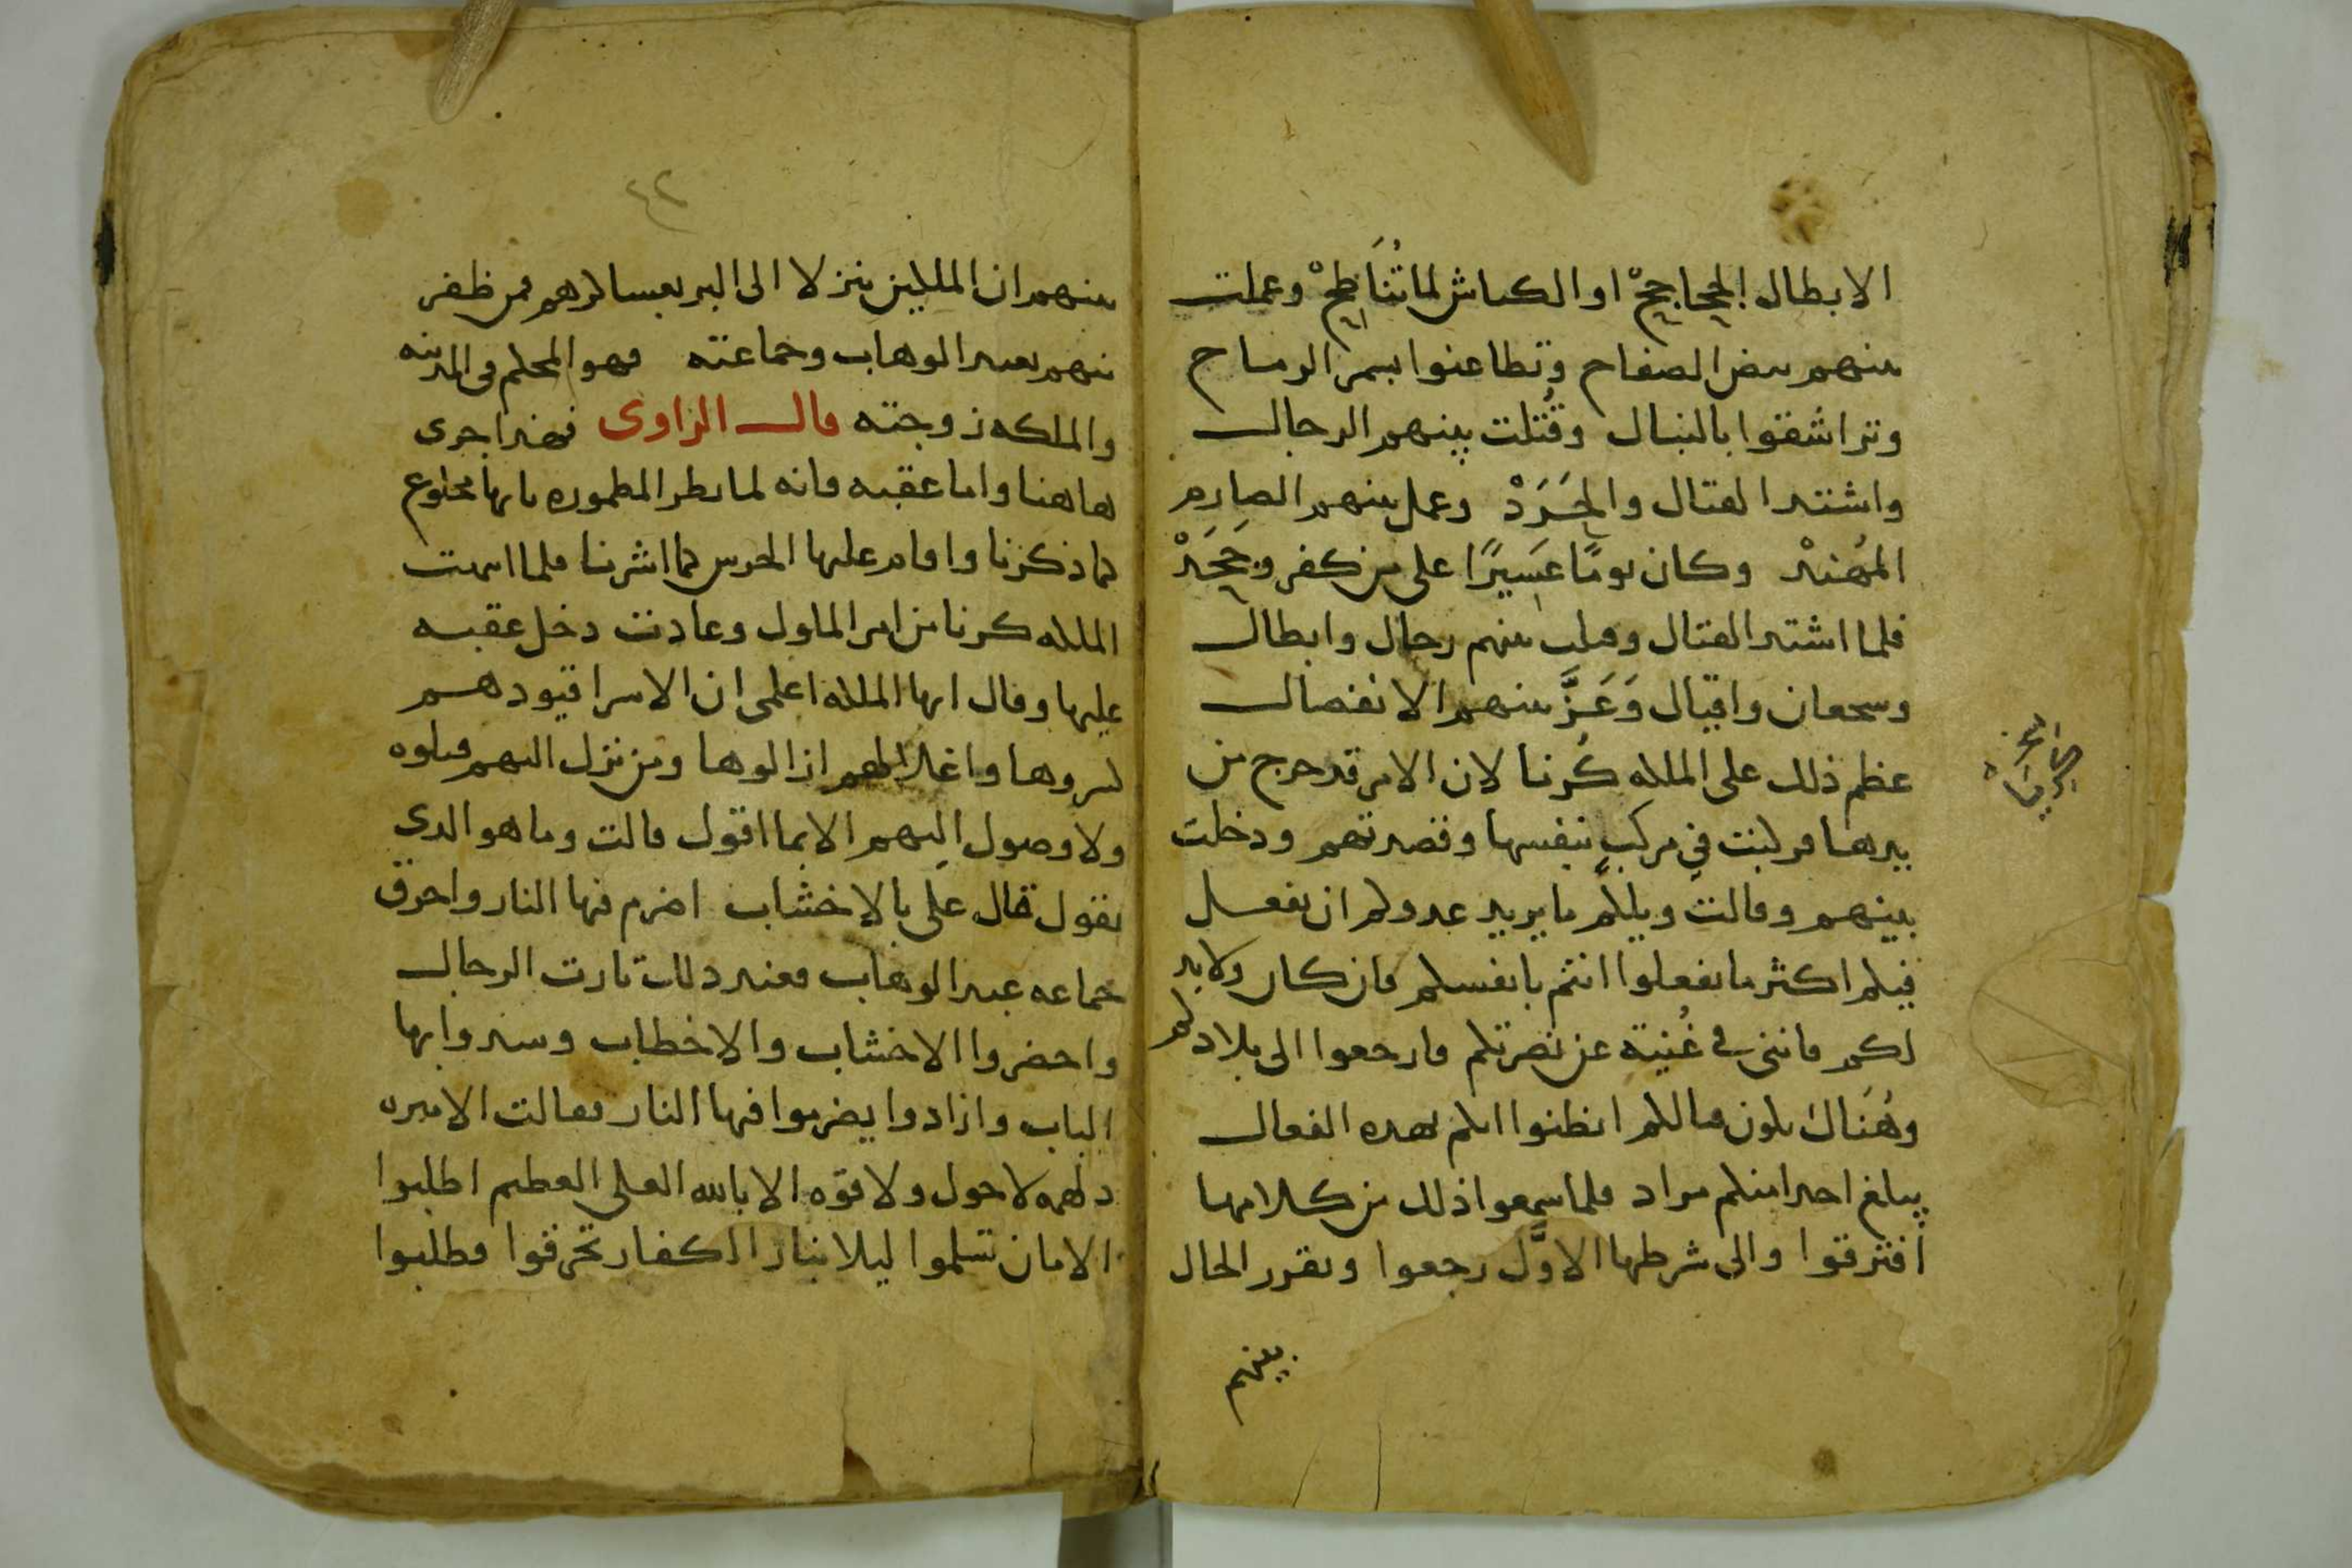 الابطال الجحاجح او الكباش لما تُنَاطِحْ وعملت
بينهم بيض الصفاح وتطاعنوا بسمر الرماح
وتراشقوا بالنبال وقُتلت بينهم الرجال
واشتد القتال والحَرَدْ وعمل بينهم الصارم
المُهندْ وكان يومًا عَسِيرًا على من كفر وجَحَدْ
فلما اشتد القتال وقتلت بينهم رجال وابطال
وسجعان واقيال وَعَزَّ بينهم الانفصال
عظم ذلك على الملكه كُرنا لان الامر قد خرج من
يدها فركبت في مركبٍ بنفسها وقصدتهم ودخلت
بينهم وقالت ويلكم ما يريد عدوكم ان يفعل
فيكم اكثر ما تفعلوا انتم بانفسكم فان كان ولابد
لكم فانني في غُنية عن نصرتكم فارجعوا الى بلادكم
وهُنَاك يكون قتالكم اتظنوا انكم بهذه الفعال
يبلغ احدا منكم مراد فلما سمعوا ذلك من كلامها
افترقوا والى شرطها الاوَّل رجعوا وتقرر الحال
بينهم
٤٢
بينهم ان الملكين ينزلا الى البر بعساكرهم فمن ظفر
منهم بعبد الوهاب وجماعته فهو المحكم في المدينه
والملكه زوجته قال الراوى فهذا جرى
هاهنا واما عقبه فانه لما نظر المطموره بابها مخلوع
كما ذكرنا واقام عليها الحرس كما اشرنا فلما انتهت
الملكه كرنا من امر الملوك وعادت دخل عقبه
عليها وقال ايها الملكه اعلمى ان الاسرا قيودهم
كسروها واغلالهم ازالوها ومن نزل اليهم قتلوه
ولا وصول اليهم الا بما اقول قالت وما هو الدى
تقول قال علَى بالاخشاب اضرم فيها النار واحرق
جماعه عبد الوهاب فعند دلك تارت الرجال
واحضروا الاخشاب والاخطاب وسدوا بها
الباب وارادوا يضرموا فيها النار فقالت الاميره
دلهمه لا حول ولا قوه الا بالله العلى العظيم اطلبوا
الامان تسلموا ليلا بنار الكفار تحرقوا فطلبوا